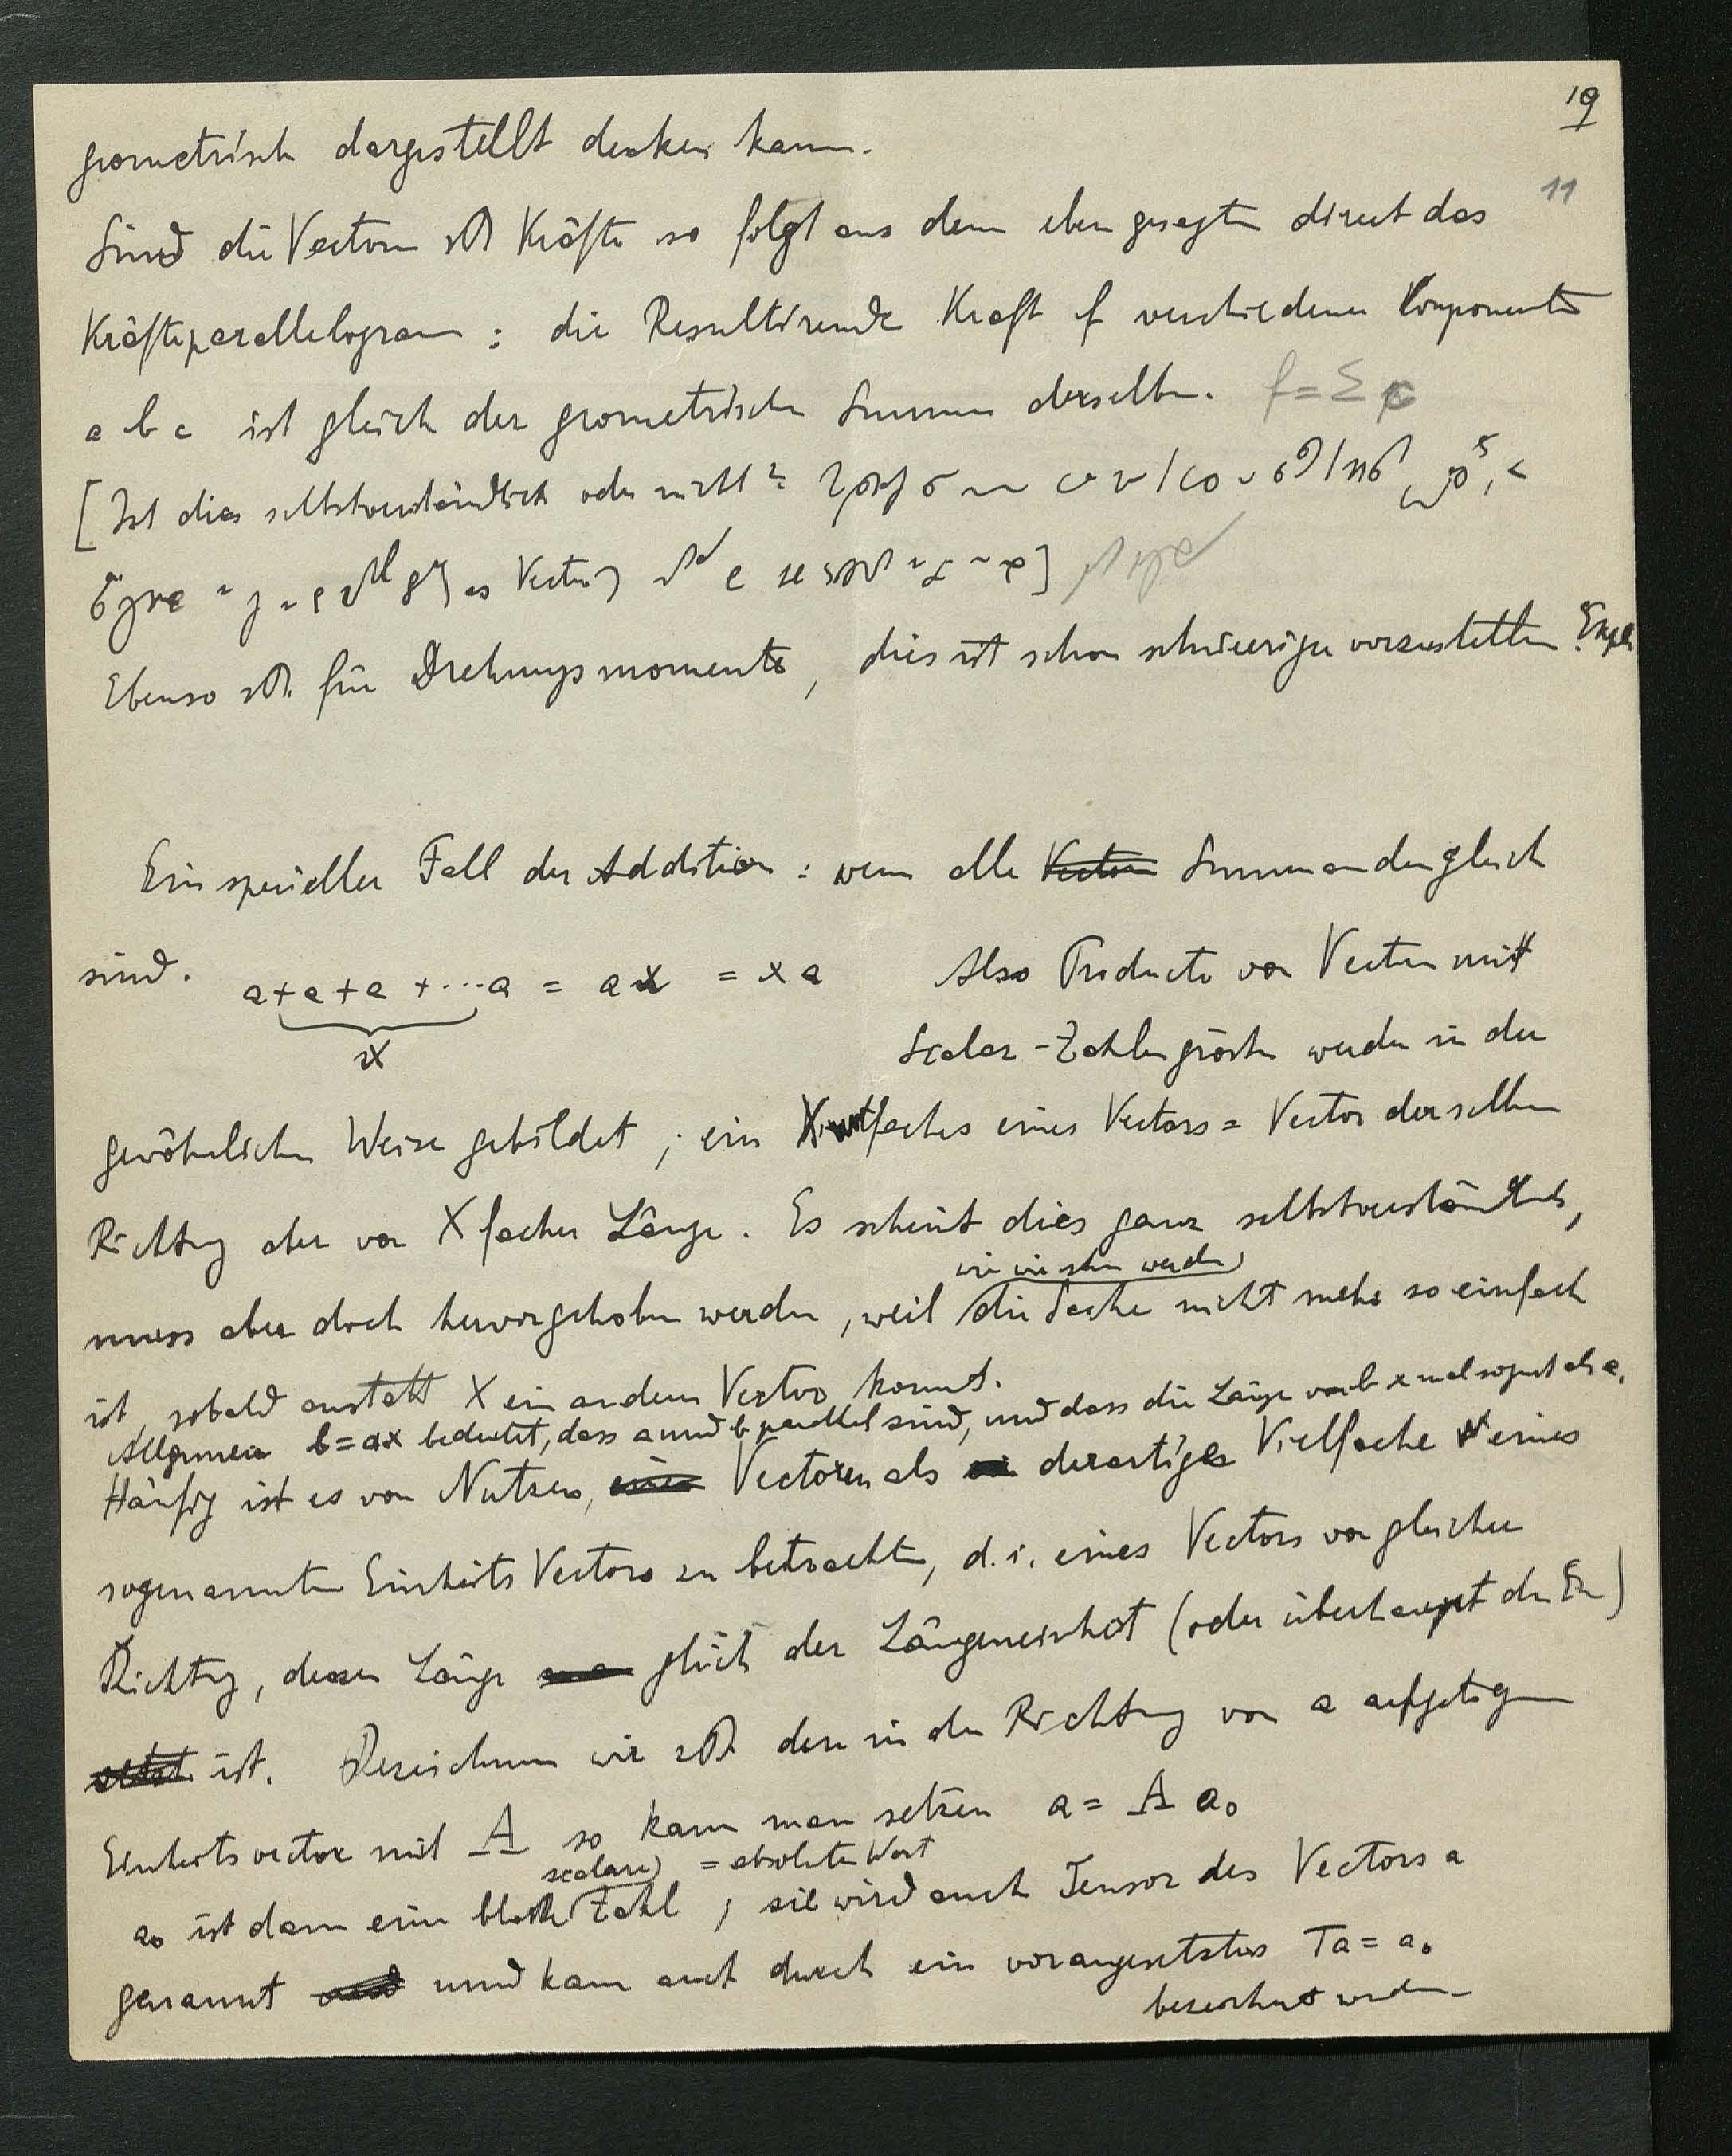 19
11
geometrisch dargestellt denken kann.
Sind die Vectoren zB Kräfte so folgt aus dem eben gesagten direct das
Kräfteparallelogram : die Resultirende Kraft f verschiedener Componenten
a b c ist gleich der geometrischen Summe derselben. f = Σ
[ Ist dies selbstverständlich oder nicht?
Vector ]
Ebenso zB. für Drehungsmomente, dies ist schon schwieriger vorzustellen.
Ein specieller Fall der Addition : wenn alle Vectoren Summanden gleich
sind. a + a + a + ... a = a x = x a Also Producte von Vectoren mit
x
Scalar-Zahlengrössen werden in der
gewöhnlichen Weise gebildet ; ein X faches eines Vectors = Vector derselben
Richtung aber von X facher Länge. Es scheint dies ganz selbstverständlich,
wie wir sehen werden
muss aber doch hervorgehoben werden, weil die Sache nicht mehr so einfach
ist, sobald anstatt X ein anderer Vector kommt.
Allgemein b = ax bedeutet, dass a und b parallel sind, und dass die Länge von b x mal so gross als a.
Häufig ist es von Nutzen, einen Vectoren als derartige Vielfache eines
sogenannten Einheits Vectors zu betrachten, d. i. eines Vectors von gleicher
Richtung, dessen Länge gleich der Längeneinheit (oder überhaupt der Ein)
selbst ist. Bezeichnen wir zB. den in der Richtung von a aufgetragenen
Einheitsvector mit A so kann man setzen a = A a₀
scalare = absoluter Wert
a₀ ist dann eine blosse Zahl ; sie wird auch Tensor des Vectors a
genannt und und kann auch durch ein vorangesetztes Ta = a₀
bezeichnet werden